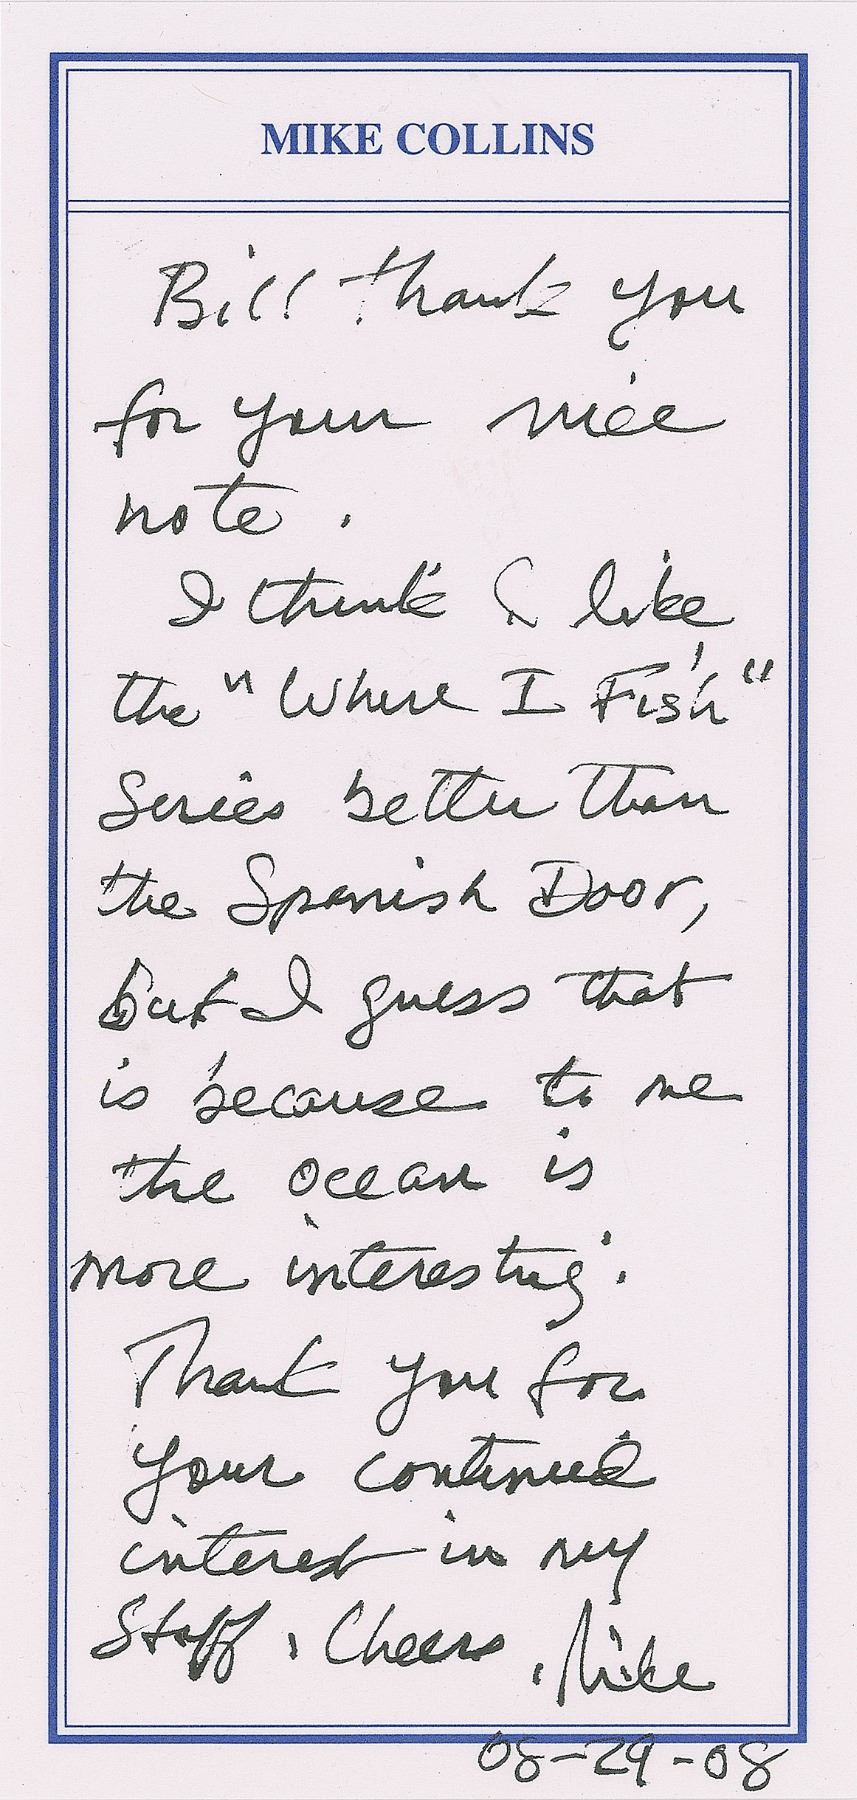 MIKE COLLINS
Bill thank you
for your nice
note.
I think I like
the "Where I Fish"
series better than
the Spanish Door,
but I guess that
is because to me
the ocean is
more interesting.
Thank you for
your continued
interest in my
stuff. Cheers, Mike
08-29-08